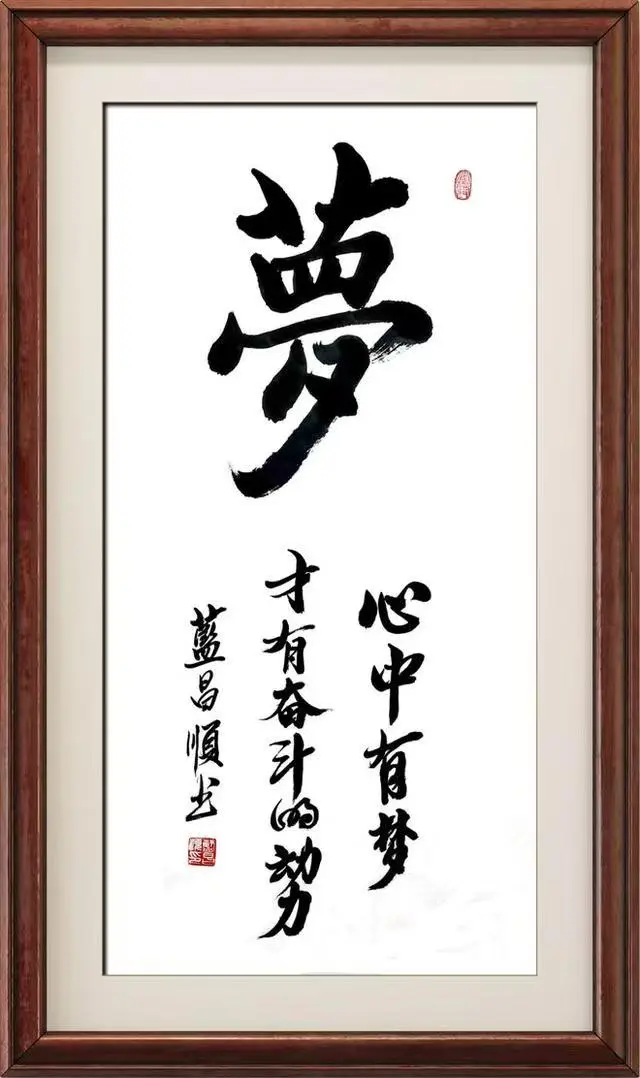 夢
心中有梦
才有奋斗的动力
藍昌順书